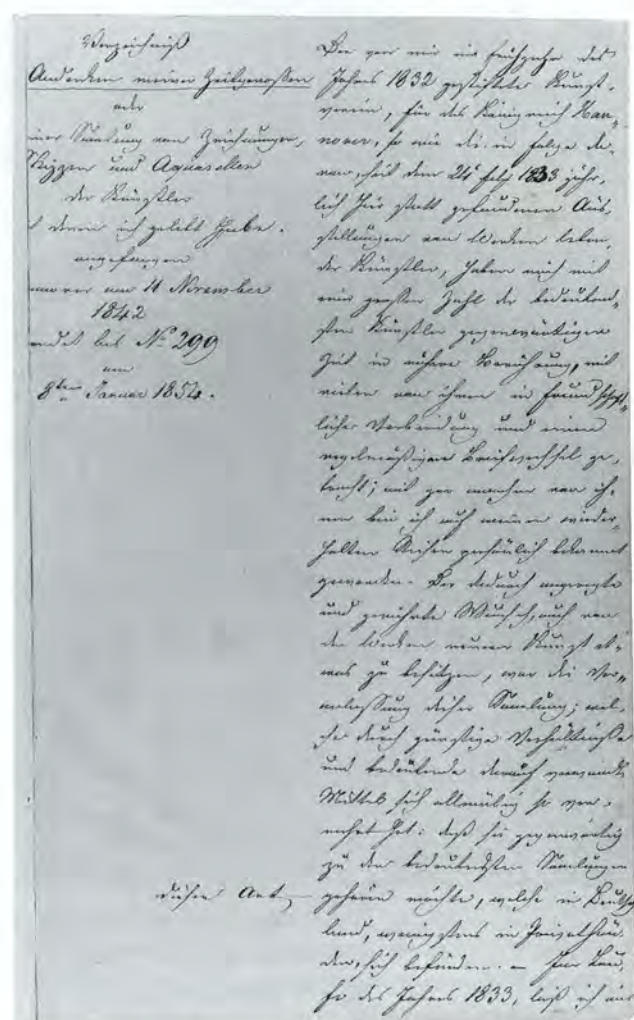 Verzeichniß
Andenken meiner Zeitgenossen
oder
einer Samlung von Zeichnungen,
Skizzen und Aquarellen
der Künstler
mit denen ich gelebt habe.
angefangen
Hannover am 11 November
1842
endet bis No 299
am
8ten Januar 1854.
Der von mir im Frühjahr des
Jahres 1832 gestiftete Kunst-
verein, für das Königreich Han„
nover, so wie die in Folge de-
ren, seit dem 24t Feb 1833 jähr„
lich hier statt gefundenen Aus„
stellungen von Werken leben„
der Künstler, haben mich mit
einer großen Zahl der bedeutend„
sten Künstler gegenwärtiger
Zeit in nähere Berührung, mit
vielen von ihnen in freundschaft„
licher Verbindung und einen
regelmäßigen Briefwechsel ge„
bracht; mit gar manchen von ih„
nen bin ich auf meinen wieder„
holten Reisen persönlich bekannt
geworden. Der dadurch angeregte
und genährte Wunsch, auch von
den Werken neuerer Kunst et„
was zu besitzen, war die Ver„
anlassung dieser Samlung; wel„
che durch günstige Verhältniße
und bedeutende darauf verwandte
Mittel sich allmälig so ver„
mehrt hat: daß sie gegenwärtig
zu den bedeutendsten Samlungen
dieser Art, gehören möchte, welche in Deutsch
land, wenigstens in Privathän„
den, sich befinden. – Im Lau„
fe des Jahres 1833, ließ ich